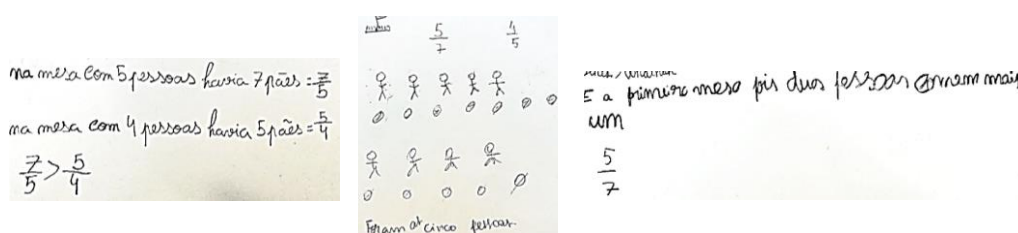 na mesa com 5 pessoas havia 7 pães = 7/5
na mesa com 4 pessoas havia 5 pães = 5/4
7/5 > 5/4
5/7 4/5
Foram cinco pessoas
E a primeira mesa pis duas pessoas comem mais
um
5/7